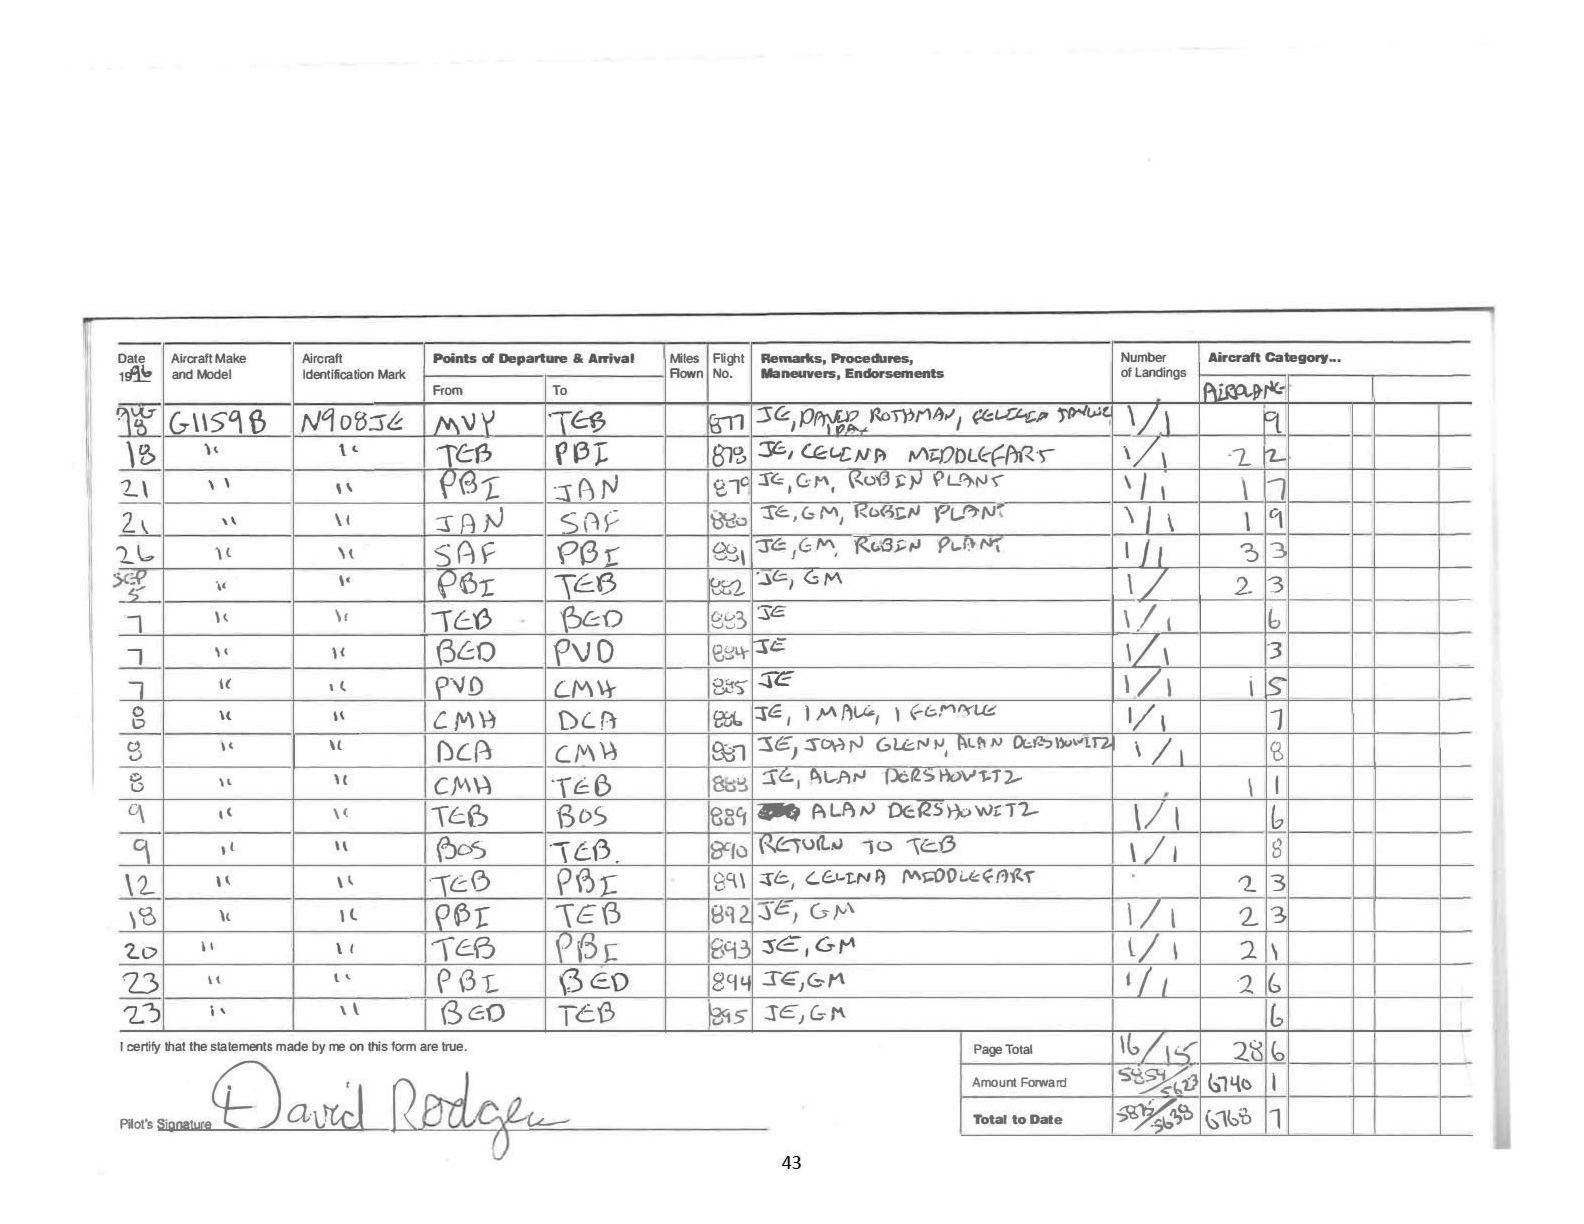 Date 1996 Aircraft Make and Model Aircraft Identification Mark Points of Departure & Arrival From To Miles Flown Flight No. Remarks, Procedures, Maneuvers, Endorsements Number of Landings Aircraft Category... AIRPLANE
AUG 18 G1159B N908JE MVY TEB 877 JE, DAVID ROTHMAN, 1/1 9
18 " " TEB PBI 878 JE, CELINA MIDDLEFART 1/1 2 2
21 " " PBI JAN 879 JE, GM, ROBIN PLANT 1/1 1 7
21 " " JAN SAF 880 JE, GM, ROBIN PLANT 1/1 1 9
26 " " SAF PBI 881 JE, GM, ROBIN PLANT 1/1 3 3
SEP 5 " " PBI TEB 882 JE, GM 1/ 2 3
7 " " TEB BED 883 JE 1/1 6
7 " " BED PVD 884 JE 1/1 3
7 " " PVD CMH 885 JE 1/1 1 5
8 " " CMH DCA 886 JE, 1 MALE, 1 FEMALE 1/1 7
8 " " DCA CMH 887 JE, JOHN GLENN, ALAN DERSHOWITZ 1/1 8
8 " " CMH TEB 888 JE, ALAN DERSHOWITZ 1 1
9 " " TEB BOS 889 ALAN DERSHOWITZ 1/1 6
9 " " BOS TEB. 890 RETURN TO TEB 1/1 8
12 " " TEB PBI 891 JE, CELINA MIDDLEFART 2 3
18 " " PBI TEB 892 JE, GM 1/1 2 3
20 " " TEB PBI 893 JE, GM 1/1 2 1
23 " " PBI BED 894 JE, GM 1/1 2 6
23 " " BED TEB 895 JE, GM 6
I certify that the statements made by me on this form are true. Page Total 16/15 28 6
Amount Forward 5854/5623 6740 1
Pilot's Signature David Rodgers Total to Date 5638 6768 7
43